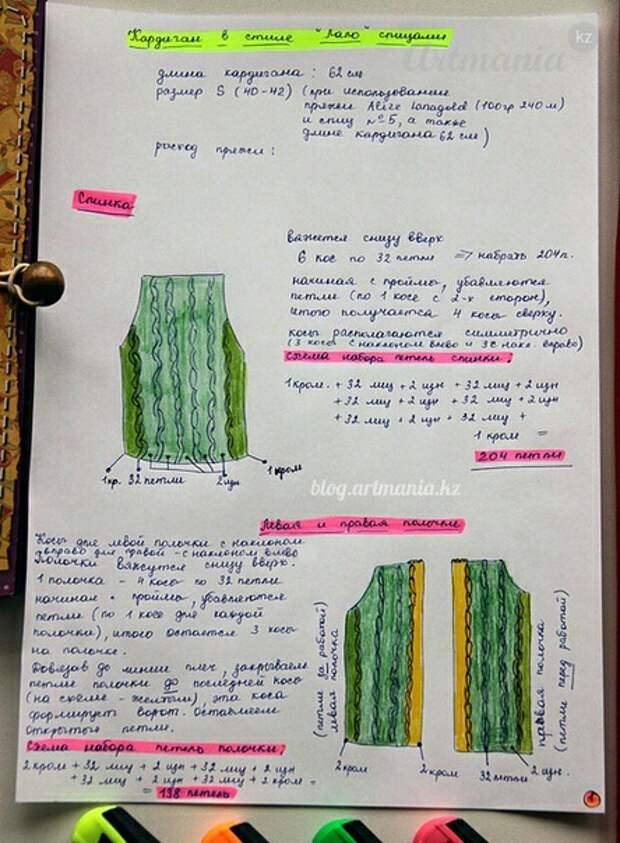 Кардиган в стиле "Лало" спицами
kz
Artmania
длина кардигана: 62 см
размер S (40-42) (при использовании
пряжи Alize Lanagold (100гр 240м)
и спиц №5, а также
длине кардигана 62 см)
расход пряжи:
Спинка
вяжется снизу вверх
6 кос по 32 петли => набрать 204п.
начиная с проймы, убавляются
петли (по 1 косе с 2-х сторон),
итого получается 4 косы сверху.
косы располагаются симметрично
(3 косы с наклоном влево и 3 с накл. вправо)
схема набора петель спинки:
1 кром. + 32 лиц + 2 изн + 32 лиц + 2 изн
+ 32 лиц + 2 изн + 32 лиц + 2 изн
+ 32 лиц + 2 изн + 32 лиц +
1 кром =
204 петли
1кр. 32 петли 2 изн 1 кром
blog.artmania.kz
Левая и правая полочки
Косы для левой полочки с наклоном
вправо для правой - с наклоном влево
Полочки вяжутся снизу вверх.
1 полочка - 4 косы по 32 петли
начиная с проймы, убавляются
петли (по 1 косе для каждой
полочки), итого остается 3 косы
на полочке.
Довязав до линии плеч, закрываем
петли полочки до последней косы
(на схеме - желтым), эта коса
формирует ворот. Оставляем
открытыми петли.
Схема набора петель полочки:
2 кром + 32 лиц + 2 изн + 32 лиц + 2 изн
+ 32 лиц + 2 изн + 32 лиц + 2 кром =
= 138 петель
(петли за работой)
левая полочка
правая полочка
(петли перед работой)
2 кром 2 кром 32 петли 2 изн.
1